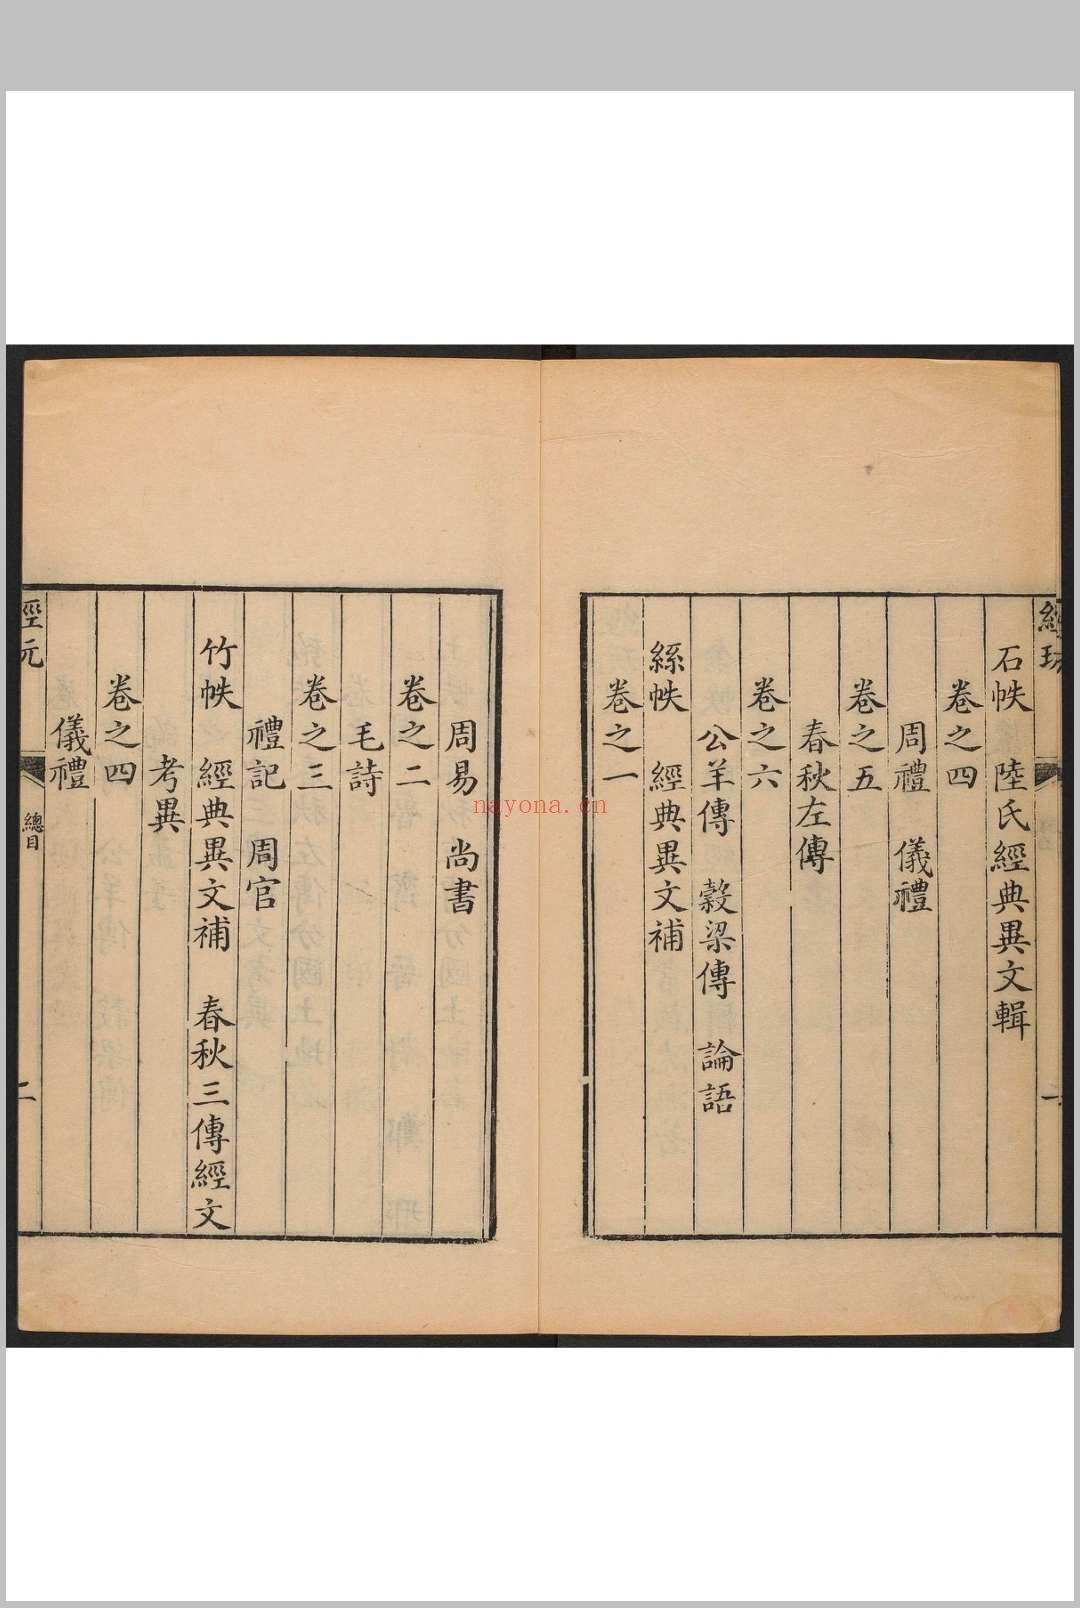 石帙　陸氏經典異文輯
卷之四
周禮　儀禮
卷之五
春秋左傳
卷之六
公羊傳　穀梁傳　論語
絲帙　經典異文補
卷之一
周易　尚書
卷之二
毛詩
卷之三
禮記　周官
竹帙　經典異文補　春秋三傳經文
考異
卷之四
儀禮
經元
總目
二
nayona.cn